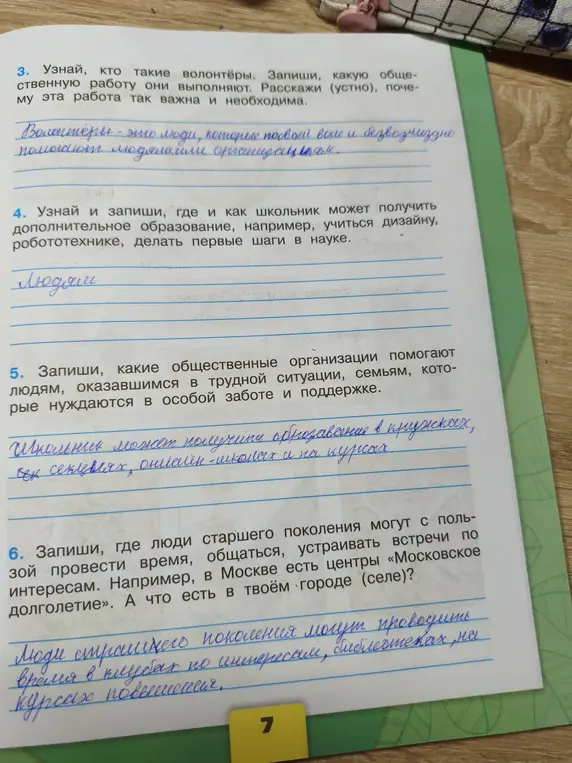 3. Узнай, кто такие волонтёры. Запиши, какую обще-
ственную работу они выполняют. Расскажи (устно), поче-
му эта работа так важна и необходима.
Волонтёры - это люди, которые по своей воле и безвозмездно
помогают людям или организациям.
4. Узнай и запиши, где и как школьник может получить
дополнительное образование, например, учиться дизайну,
робототехнике, делать первые шаги в науке.
Людям
5. Запиши, какие общественные организации помогают
людям, оказавшимся в трудной ситуации, семьям, кото-
рые нуждаются в особой заботе и поддержке.
Школьник может получить образавание в кружках,
секциях, онлайн-школах и на курсах
6. Запиши, где люди старшего поколения могут с поль-
зой провести время, общаться, устраивать встречи по
интересам. Например, в Москве есть центры «Московское
долголетие». А что есть в твоём городе (селе)?
Люди страшего поколения могут проводить
время в клубах по интересам, библиотеках, на
курсах повышения.
7